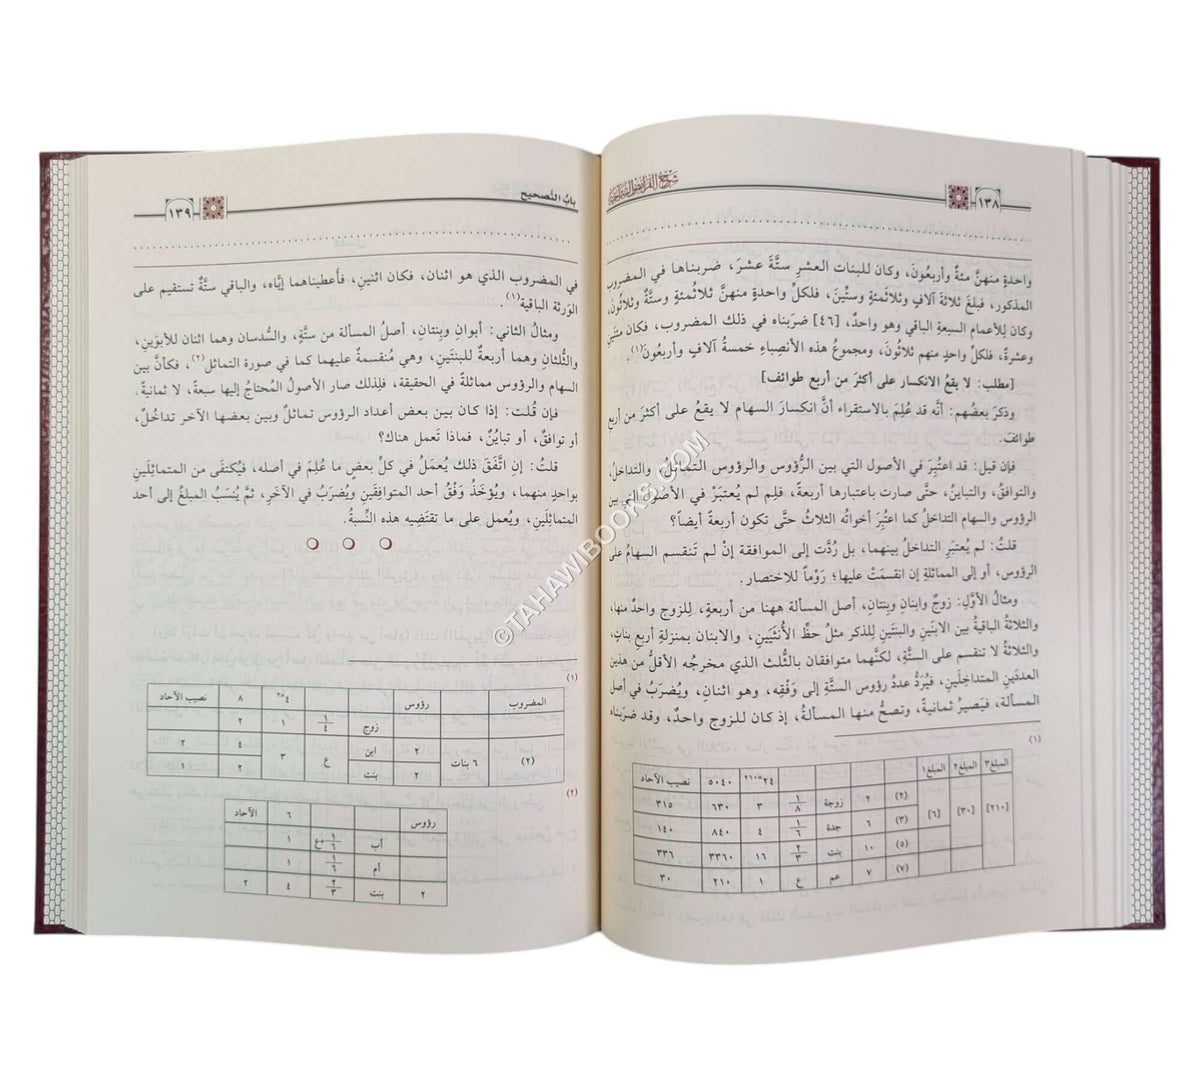 ١٣٨
شرح الفرائض السراجية
واحدةٍ منهنَّ مئةٌ وأربعُونَ، وكان للبنات العشرِ ستَّةَ عشرَ، ضربناها في المضروب
المذكور، فبلغَ ثلاثةَ آلافٍ وثلاثَمئةٍ وستِّينَ، فلكلِّ واحدةٍ منهنَّ ثلاثُمئةٍ وستَّةٌ وثلاثُونَ،
وكان للأعمام السبعةِ الباقي وهو واحدٌ، [٤٦] ضربناه في ذلك المضروب، فكان مئتَينِ
وعشرةً، فلكلِّ واحدٍ منهم ثلاثُونَ، ومجموعُ هذه الأنصِباءِ خمسةُ آلافٍ وأربعُونَ(١).
[مطلب: لا يقعُ الانكسار على أكثرَ من أربع طوائف]
وذكرَ بعضُهم: أنَّه قد عُلِمَ بالاستقراء أنَّ انكسارَ السهام لا يقعُ على أكثرَ من أربعِ
طوائفَ.
فإن قيل: قد اعتُبِرَ في الأصول التي بين الرُّؤوس والرؤوس التماثلُ، والتداخلُ،
والتوافقُ، والتباينُ، حتَّى صارت باعتبارها أربعةً، فلِم لم يُعتبَرْ في الأصول التي بين
الرؤوس والسهام التداخلُ كما اعتُبِرَ أخواتُه الثلاثُ حتَّى تكون أربعةً أيضاً؟
قلتُ: لم يُعتبَرِ التداخلُ بينهما، بل رُدَّت إلى الموافقة إنْ لم تَنقسم السهامُ على
الرؤوس، أو إلى المماثلةِ إن انقسمَتْ عليها؛ رَوْماً للاختصار.
ومثالُ الأوَّلِ: زوجٌ وابنانِ وبنتانِ، أصل المسألة ههنا من أربعةٍ، للزوج واحدٌ منها،
والثلاثةُ الباقية بين الابنَينِ والبنتَينِ للذكر مثلُ حظِّ الأُنثَيَينِ، والابنان بمنزلة أربعِ بناتٍ،
والثلاثةُ لا تنقسم على الستَّةِ، لكنَّهما متوافقان بالثُّلث الذي مخرجُه الأقلُّ من هذين
العددَينِ المتداخِلَينِ، فيُرَدُّ عددُ رؤوس الستَّةِ إلى وَفْقِه، وهو اثنانِ، ويُضرَبُ في أصل
المسألة، فيَصيرُ ثمانيةً، وتصحُّ منها المسألةُ، إذ كان للزوج واحدٌ، وقد ضربناه
(١)
المبلغ٣ المبلغ٢ المبلغ١ ٢٤×٢١٠ ٥٠٤٠ نصيب الآحاد
[٢١٠] [٣٠] [٦] (٢) ٢ زوجة ١/٨ ٣ ٦٣٠ ٣١٥
(٣) ٦ جدة ١/٦ ٤ ٨٤٠ ١٤٠
(٥) ١٠ بنت ٢/٣ ١٦ ٣٣٦٠ ٣٣٦
(٧) ٧ عم ع ١ ٢١٠ ٣٠
باب التصحيح
١٣٩
في المضروب الذي هو اثنان، فكان اثنينِ، فأعطيناهما إيَّاه، والباقي ستَّةٌ تستقيم على
الوَرثة الباقية(١).
ومثالُ الثاني: أبوانِ وبنتانِ، أصلُ المسألة من ستَّةٍ، والسُّدسان وهما اثنان للأبوَينِ،
والثُّلثانِ وهما أربعةٌ للبنتَينِ، وهي مُنقسمةٌ عليهما كما في صورة التماثل(٢)، فكأنَّ بين
السهام والرؤوس مماثلةً في الحقيقة، فلِذلك صار الأصولُ المُحتاجُ إليها سبعةً، لا ثمانيةً.
فإن قُلتَ: إذا كان بين بعض أعداد الرؤوس تماثلٌ وبين بعضها الآخر تداخُلٌ،
أو توافقٌ، أو تبايُنٌ، فماذا تَعمل هناك؟
قلتُ: إنِ اتَّفَقَ ذلك يُعمَلُ في كلِّ بعضٍ ما عُلِمَ في أصله، فيُكتفَى من المتماثِلَينِ
بواحدٍ منهما، ويُؤخَذُ وَفْقُ أحد المتوافِقَينِ ويُضرَبُ في الآخرِ، ثمَّ يُنسَبُ المبلغُ إلى أحد
المتماثِلَينِ، ويُعمل على ما تقتضِيه هذه النِّسبةُ.
(١)
المضروب رؤوس ٤×٢ ٨ نصيب الآحاد
زوج ١/٤ ١ ٢
(٢) ٦ بنات ٢ ابن ع ٣ ٤ ٢
٢ بنت ٢ ١
(٢)
رؤوس ٦ الآحاد
أب ١/٦+ع ١
أم ١/٦ ١
٢ بنت ٢/٣ ٤ ٢
©TAHAWIBOOKS.COM